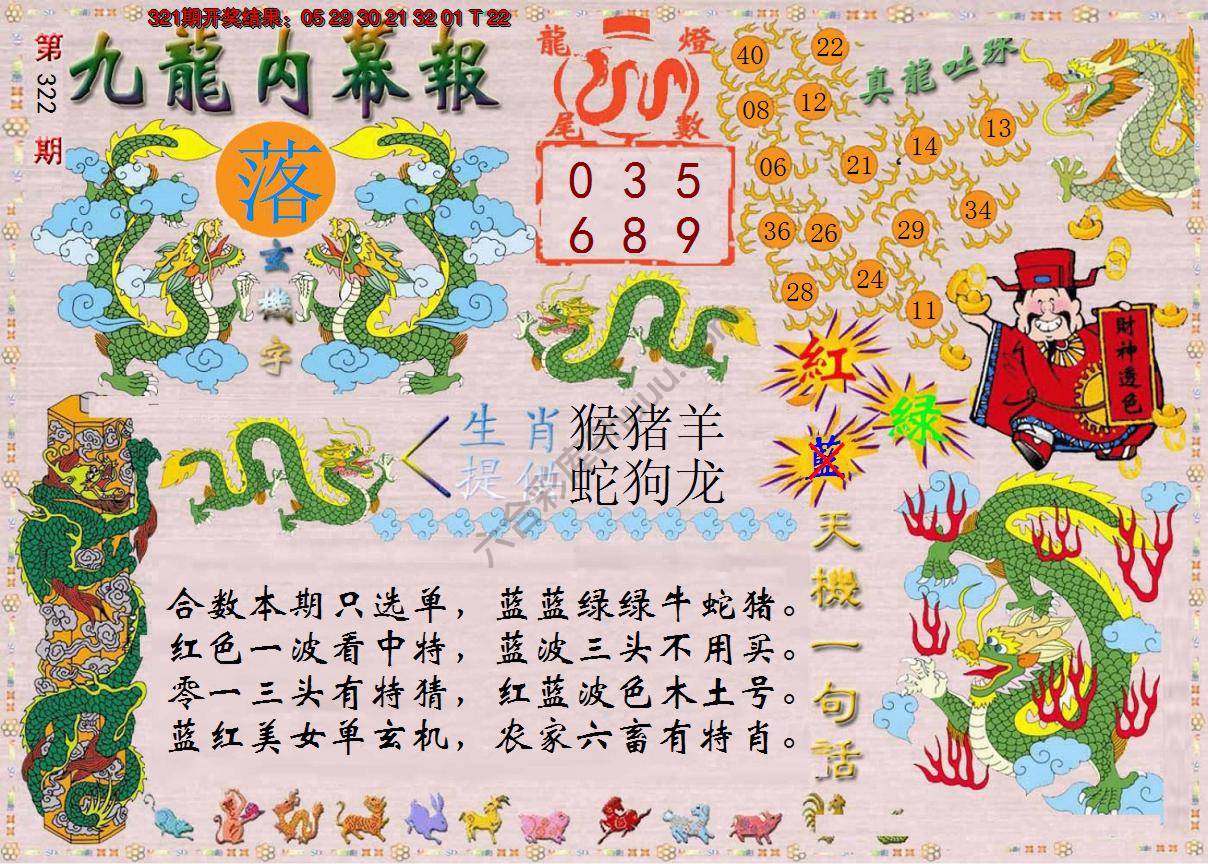 321期开奖结果：05 29 30 21 32 01 T 22
第322期
九龍内幕報
落
玄機字
龍燈
尾數
0 3 5
6 8 9
真龍吐珠
40 22
08 12
06 21 14 13
36 26 29 34
28 24 11
財神透色
紅
綠
藍
生肖 猴猪羊
提供 蛇狗龙
天機一句話
合数本期只选单，蓝蓝绿绿牛蛇猪。
红色一波看中特，蓝波三头不用买。
零一三头有特猜，红蓝波色木土号。
蓝红美女单玄机，农家六畜有特肖。